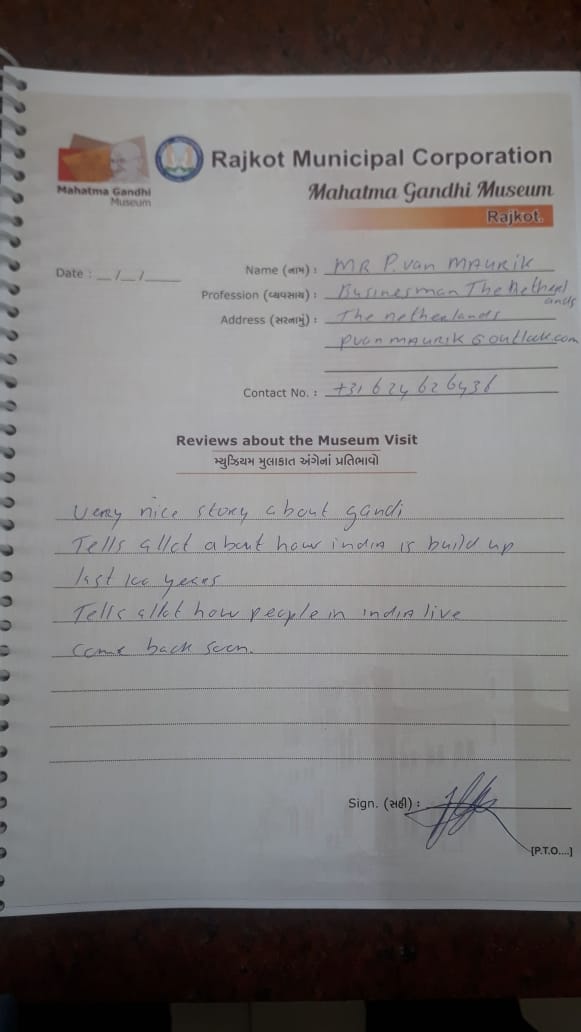 Mahatma Gandhi
Museum
Rajkot Municipal Corporation
Mahatma Gandhi Museum
Rajkot.
Date : __/__/____
Name (નામ) : MR P. van MAURIK
Profession (વ્યવસાય) : Businesman The Netherlands
Address (સરનામું) : The netherlands
pvanmaurik@outlook.com
Contact No. : +31 6 24 62 6436
Reviews about the Museum Visit
મ્યુઝિયમ મુલાકાત અંગેનાં પ્રતિભાવો
Very nice story about gandi
Tells allot about how india is build up
last 100 years
Tells allot how people in india live
come back soon.
Sign. (સહી) :
[P.T.O....]